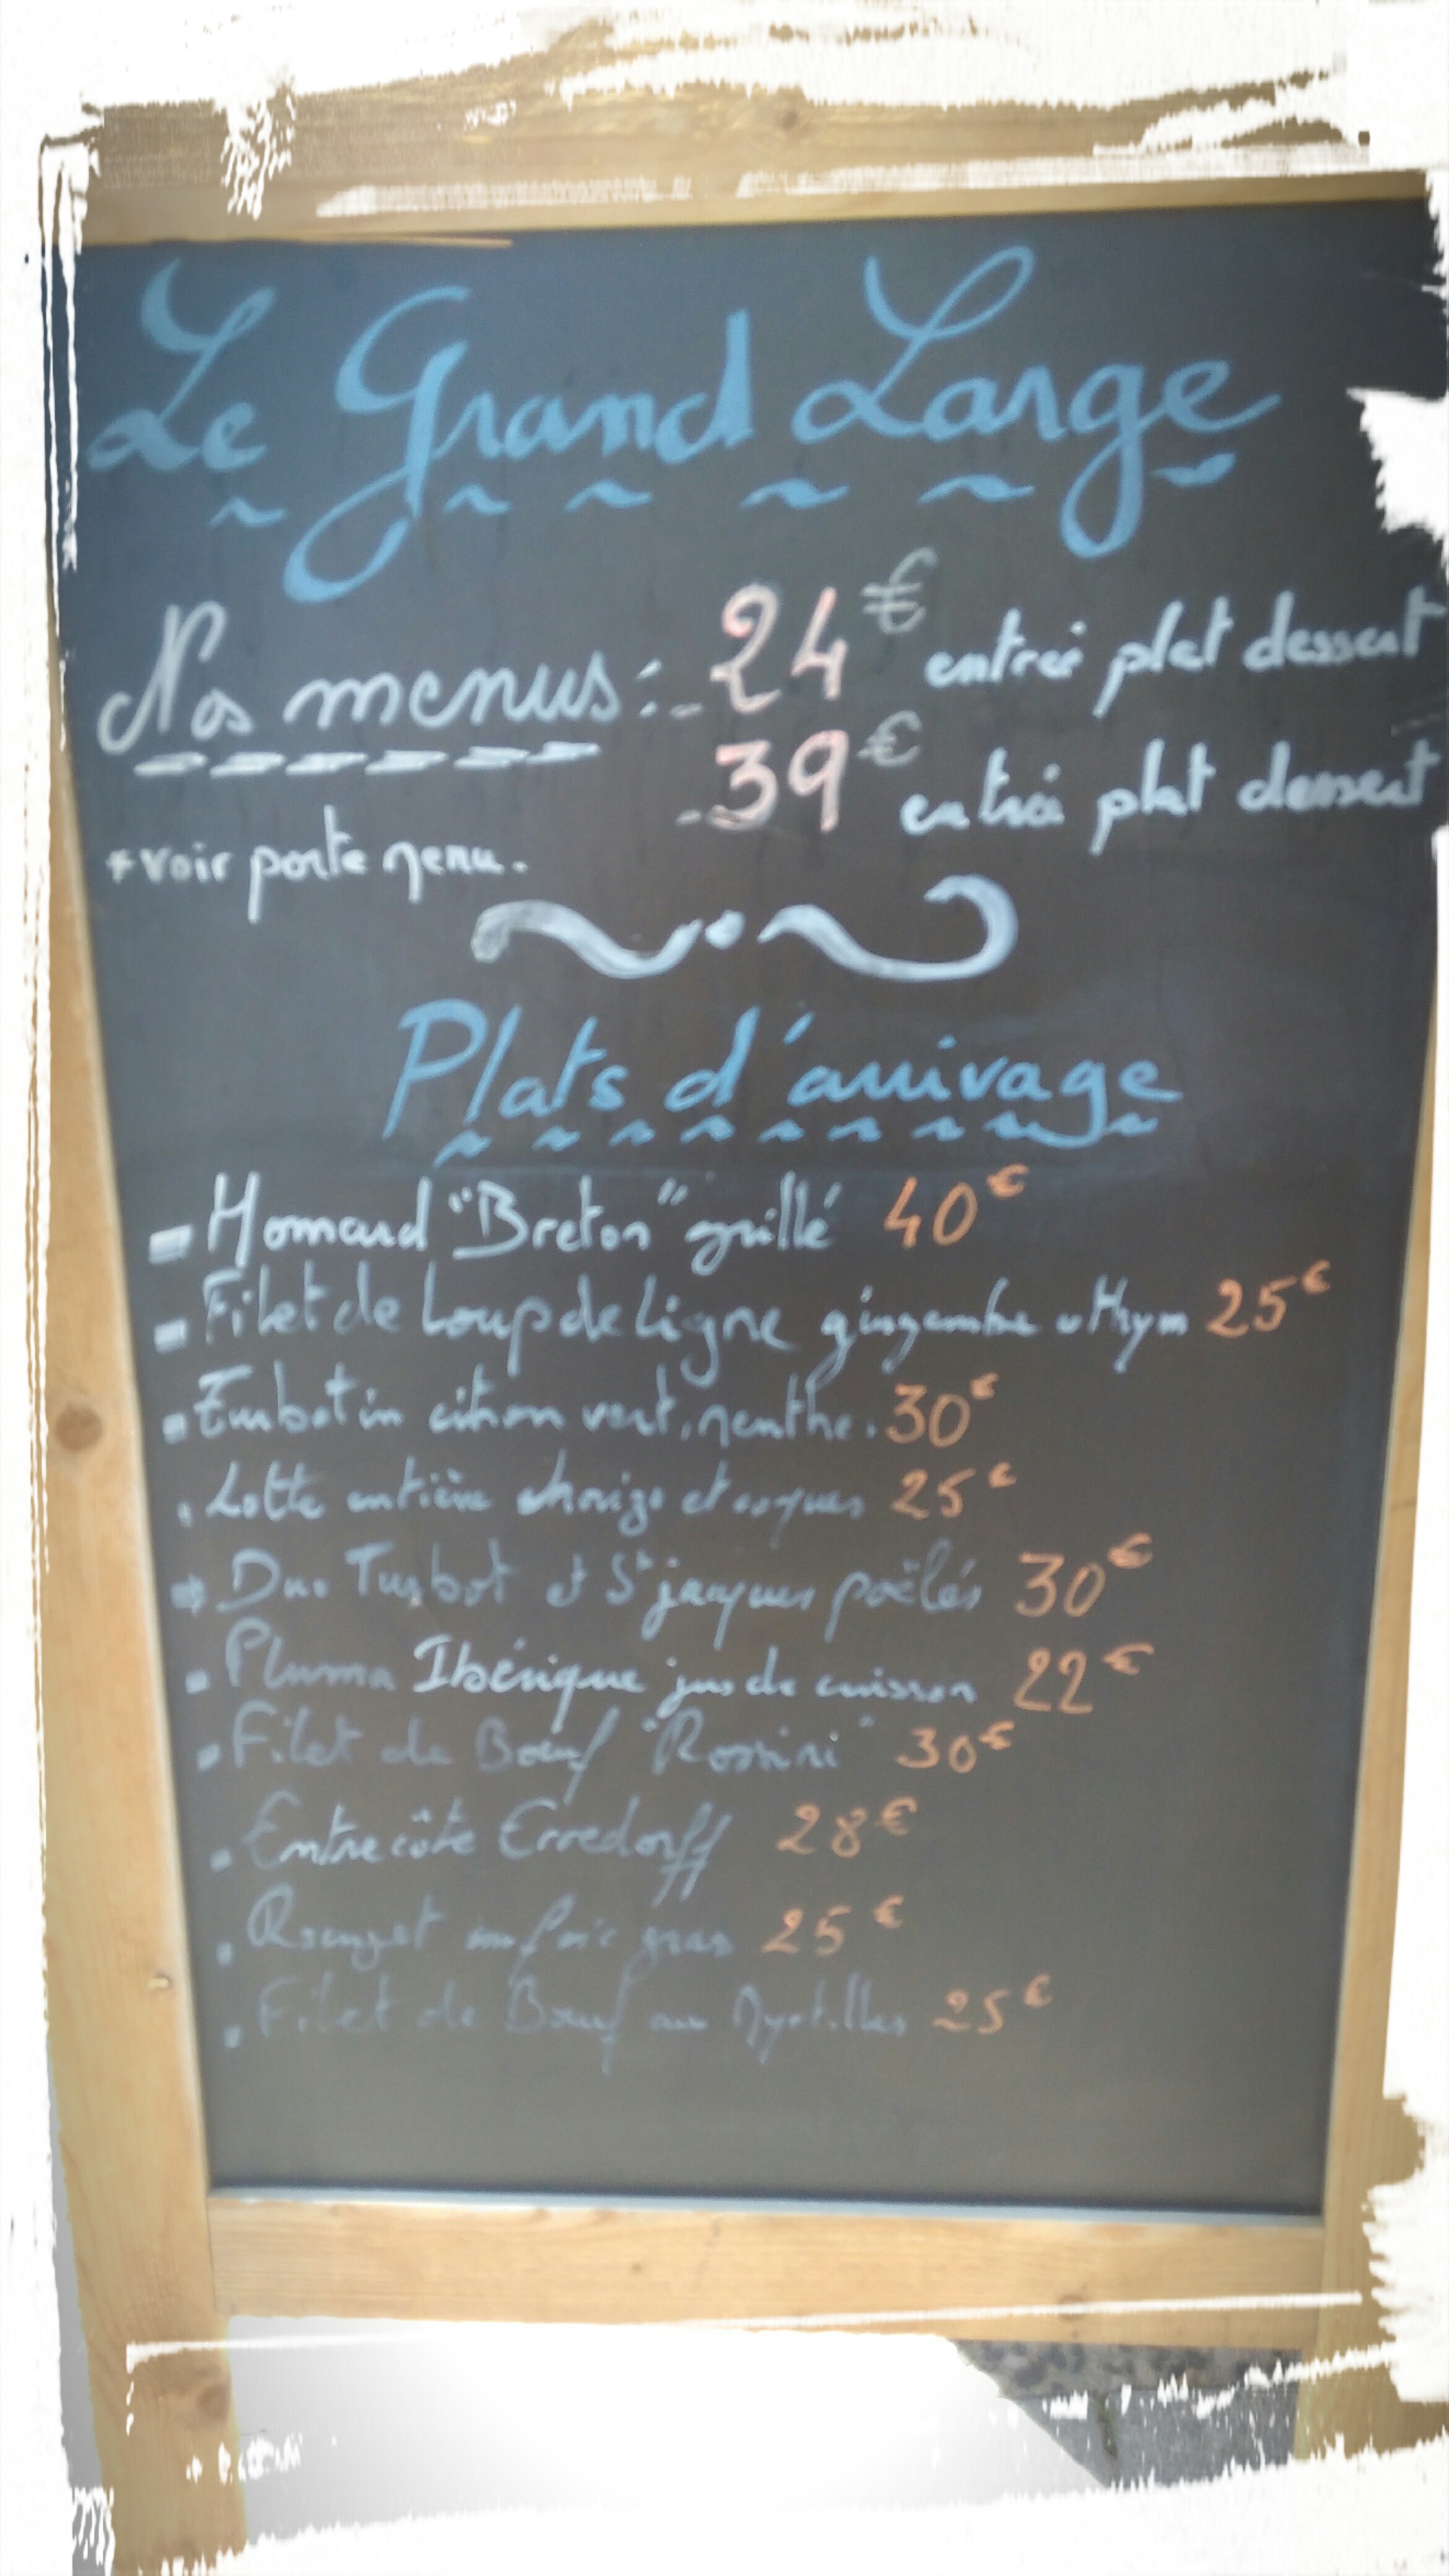 Le Grand Large
Nos menus : - 24€ entrée plat dessert
- 39€ entrée plat dessert
* voir porte menu.
Plats d'arrivage
- Homard "Breton" grillé 40€
- Filet de Loup de Ligne gingembre thym 25€
- Turbotin citron vert, menthe. 30€
- Lotte entière chorizo et coques 25€
- Duo Turbot et St jacques poëlés 30€
- Pluma Ibérique jus de cuisson 22€
- Filet de Bœuf "Rossini" 30€
- Entrecôte Erredorff 28€
- Rouget au foie gras 25€
- Filet de Bœuf au Myrtilles 25€